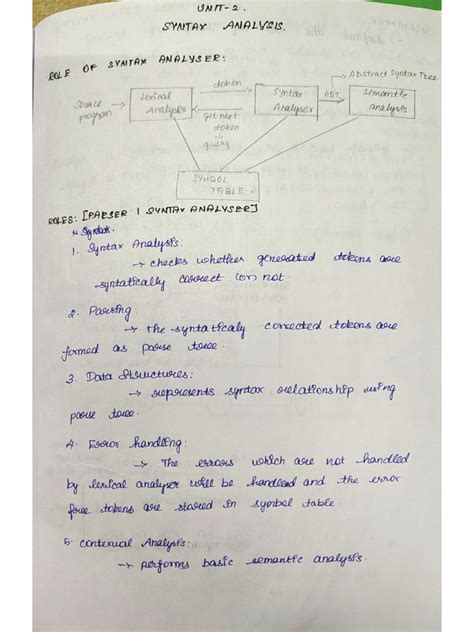 UNIT-2.
SYNTAX ANALYSIS.
ROLE OF SYNTAX ANALYSER:
Source program
Lexical Analysis
token
get next token
query
Syntax Analyser
AST
→ Abstract Syntax Tree.
Semantic analysis
SYMBOL TABLE.
ROLES: [PARSER | SYNTAX ANALYSER]
1. Syntax Analysis:
→ checks whether generated tokens are
syntatically correct (or) not.
2. Parsing:
→ The syntatically corrected tokens are
formed as parse tree.
3. Data Structures:
→ represents syntax relationship using
parse tree.
4. Error handling:
→ The errors which are not handled
by lexical analyser will be handled and the error
free tokens are stored in symbol table.
5. contexual Analysis:
→ performs basic semantic analysis.